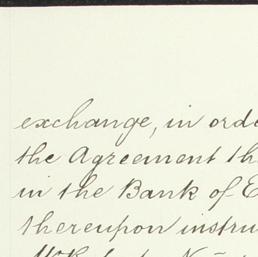 exchange, in orde
the Agreement th
in the Bank of E
thereupon instru